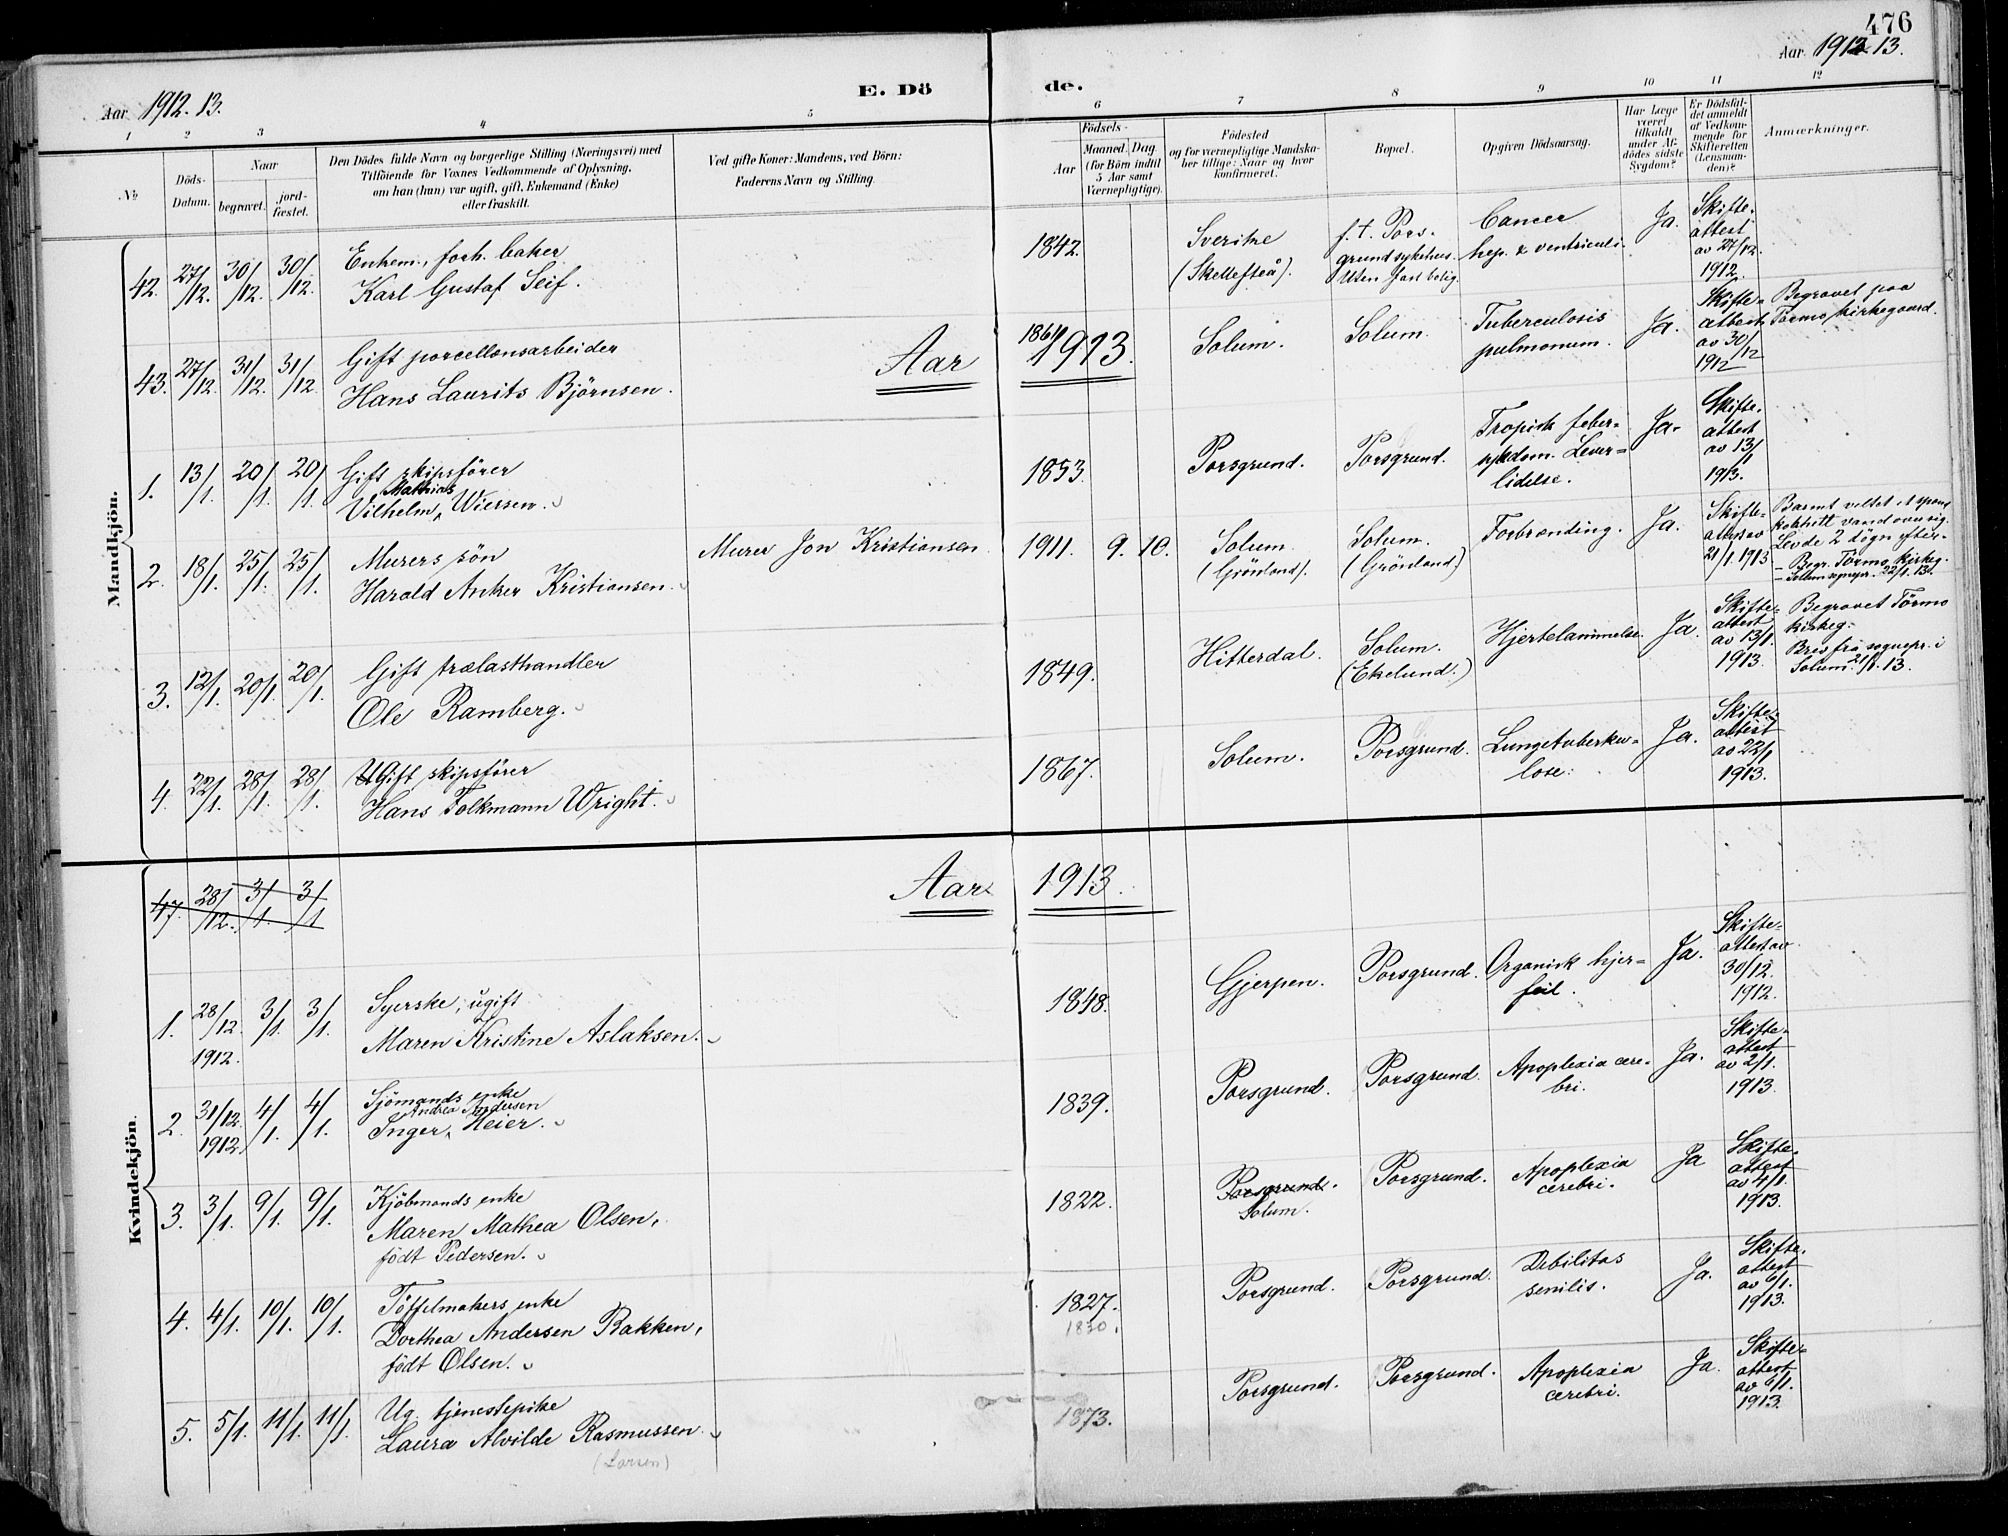 476
Aar 1912. 13.
E. Dö
de.
Aar 1912. 13.
1 2 3 4 5 6 7 8 9 10 11 12
No.
Döds-Datum.
Naar
begravet.
jord-fæstet.
Den Dödes fulde Navn og borgerlige Stilling (Næringsvei) med
Tilföiende for Voxnes Vedkommende af Oplysning,
om han (hun) var ugift, gift, Enkemand (Enke)
eller fraskilt.
Ved gifte Koner: Mandens, ved Börn:
Faderens Navn og Stilling.
Födsels-
Aar
Maaned. Dag.
(for Börn indtil
5 Aar samt
Værnepligtige).
Födested
og for værnepligtige Mandska-
ber tillige: Naar og hvor
konfirmeret.
Bopæl.
Opgiven Dödsaarsag.
Har Læge
været
tilkaldt
under Af-
dödes sidste
Sygdom?
Er Dödsfal-
det anmeldt
af Vedkom-
mende for
Skifteretten
(Lensman-
den)?
Anmærkninger.
Mandkjön.
42. 27/12. 30/12. 30/12.
Enkem., forh. baker
Karl Gustaf Seif.
1842.
Sverike
(Skellefteå).
f. t. Pors-
grund sykehus.
Uten fast bolig.
Cancer
hep. & ventriculi.
Ja.
Skifte-
attest
av 27/12.
1912.
43. 27/12. 31/12. 31/12.
Gift porcellænsarbeider
Hans Laurits Björnsen.
1861
Solum.
Solum.
Tuberculosis
pulmonum.
Ja.
Skifte-
attest
av 30/12
1912
Begravet paa
Tørmo kirkegaard.
Aar 1913.
1. 13/1. 20/1. 20/1.
Gift skipsförer
Mathias
Vilhelm Wiersen.
1853.
Porsgrund.
Porsgrund.
Tropisk feber-
sykdom. Lever-
lidelse.
Ja.
Skifte-
attest
av 13/1
1913.
2. 18/1. 25/1. 25/1.
Murers sön
Harald Anker Kristiansen.
Murer Jon Kristiansen
1911. 9. 10.
Solum.
(Grönland).
Solum.
(Grönland.)
Forbrænding.
Ja.
Skifte-
attest av
21/1. 1913
Barnet veltet et spand
kokhett vand over sig.
Levde 2 døgn efter.
- Begr. Törmo kirkeg.
- Solum sognepr. 22/1. 13.
3. 12/1. 20/1. 20/1.
Gift trælasthandler
Ole Ramberg.
1849.
Hitterdal.
Solum.
(Ekelund.)
Hjertelammelse.
Ja.
Skifte-
attest
av 13/1.
1913.
Begravet Törmo
kirkeg.
Brev fra sognepr. i
Solum 21/1. 13.
4. 22/1. 28/1. 28/1.
Gift skipsförer
Hans Folkmann Wright.
1867.
Solum.
Porsgrund.
Lungetuberku-
lose.
Ja.
Skifte-
attest
av 22/1
1913.
Kvindekjön.
47. 28/12. 3/1. 3/1
Aar 1913.
1. 28/12. 1912. 3/1. 3/1.
Syerske, ugift
Maren Kristine Aslaksen.
1848.
Gjerpen.
Porsgrund.
Organisk hjer-
feil.
Ja.
Skifte-
attest av
30/12.
1912.
2. 31/12. 1912. 4/1. 4/1.
Sjömands enke
Andrea Andersen
Inger Heier.
1839.
Porsgrund.
Porsgrund.
Apoplexia cere-
bri.
Ja.
Skifte-
attest
av 2/1.
1913.
3. 3/1. 9/1. 9/1.
Kjöbmands enke
Maren Mathea Olsen,
födt Pedersen.
1822.
Porsgrund.
Solum.
Porsgrund.
Apoplexia
cerebri.
Ja
Skifte-
attest
av 4/1.
1913.
4. 4/1. 10/1. 10/1.
Töffelmakers enke
Dorthea Andersen Bakken,
födt Olsen.
1827.
1830.
Porsgrund.
Porsgrund.
Debilitas
senilis.
Ja.
Skifte-
attest
av 6/1.
1913.
5. 5/1. 11/1. 11/1.
Ug. tjenestepike
Laura Alvilde Rasmussen.
(Larsen)
1873.
Porsgrund.
Porsgrund.
Apoplexia
cerebri.
Ja.
Skifte-
attest
av 6/1.
1913.